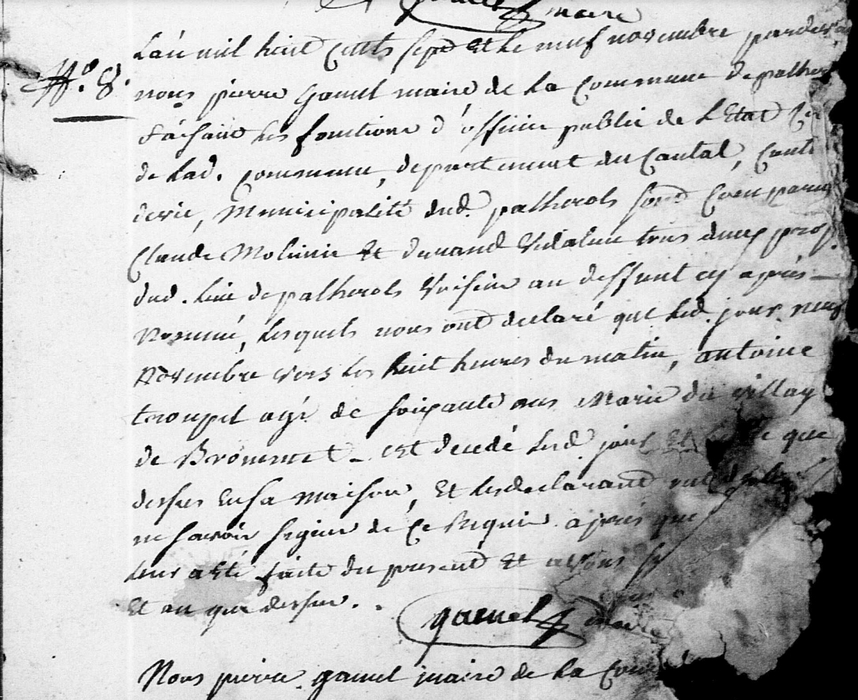 maire
N.° 8.
L'an mil huit cents sept et le neuf novembre pardevant
nous pierre gamel maire de la Commune de palherols
faisant les fonctions d'officier public de L'Etat
de lad. Commune, departement du Cantal, Canton
de vic, Municipalité dud. palherols sont Comparus
Claude Molinié et durand Vidalinc tous deux prop.
dud. lieu de palherols Voisins au deffunt cy après
Nommé, lesquels nous ont declaré que led. jour neuf
Novembre vers les huit heures du matin, antoine
troupel agé de soixante ans Marié du village
de Brommet - est decedé led. jour et que
dessus en sa maison, Et les declarants ont
ne savoir signer de Ce Requis après que
leur a eté faite du present Et avons
Et an que dessus.
gamel maire
Nous pierre gamel maire de la